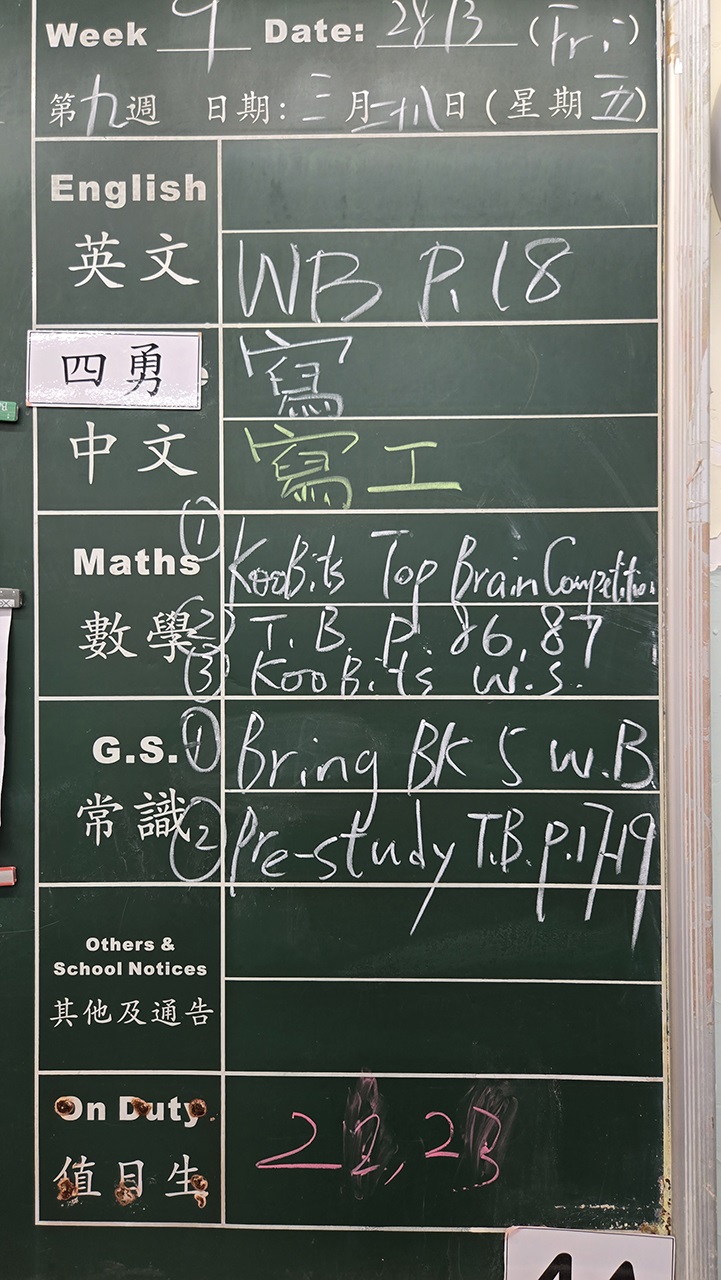 Week 9 Date: 28/3 (Fri)
第九週 日期: 三月二十八日 (星期五)
English
英文
WB P.18
四勇
寫
中文
寫工
Maths
① KooBits Top Brain Competition
數學
② T.B. p. 86,87
③ KooBits w.s.
G.S.
① Bring BK 5 W.B.
常識
② Pre-study T.B. p.17-19
Others &
School Notices
其他及通告
On Duty
值日生
22, 23